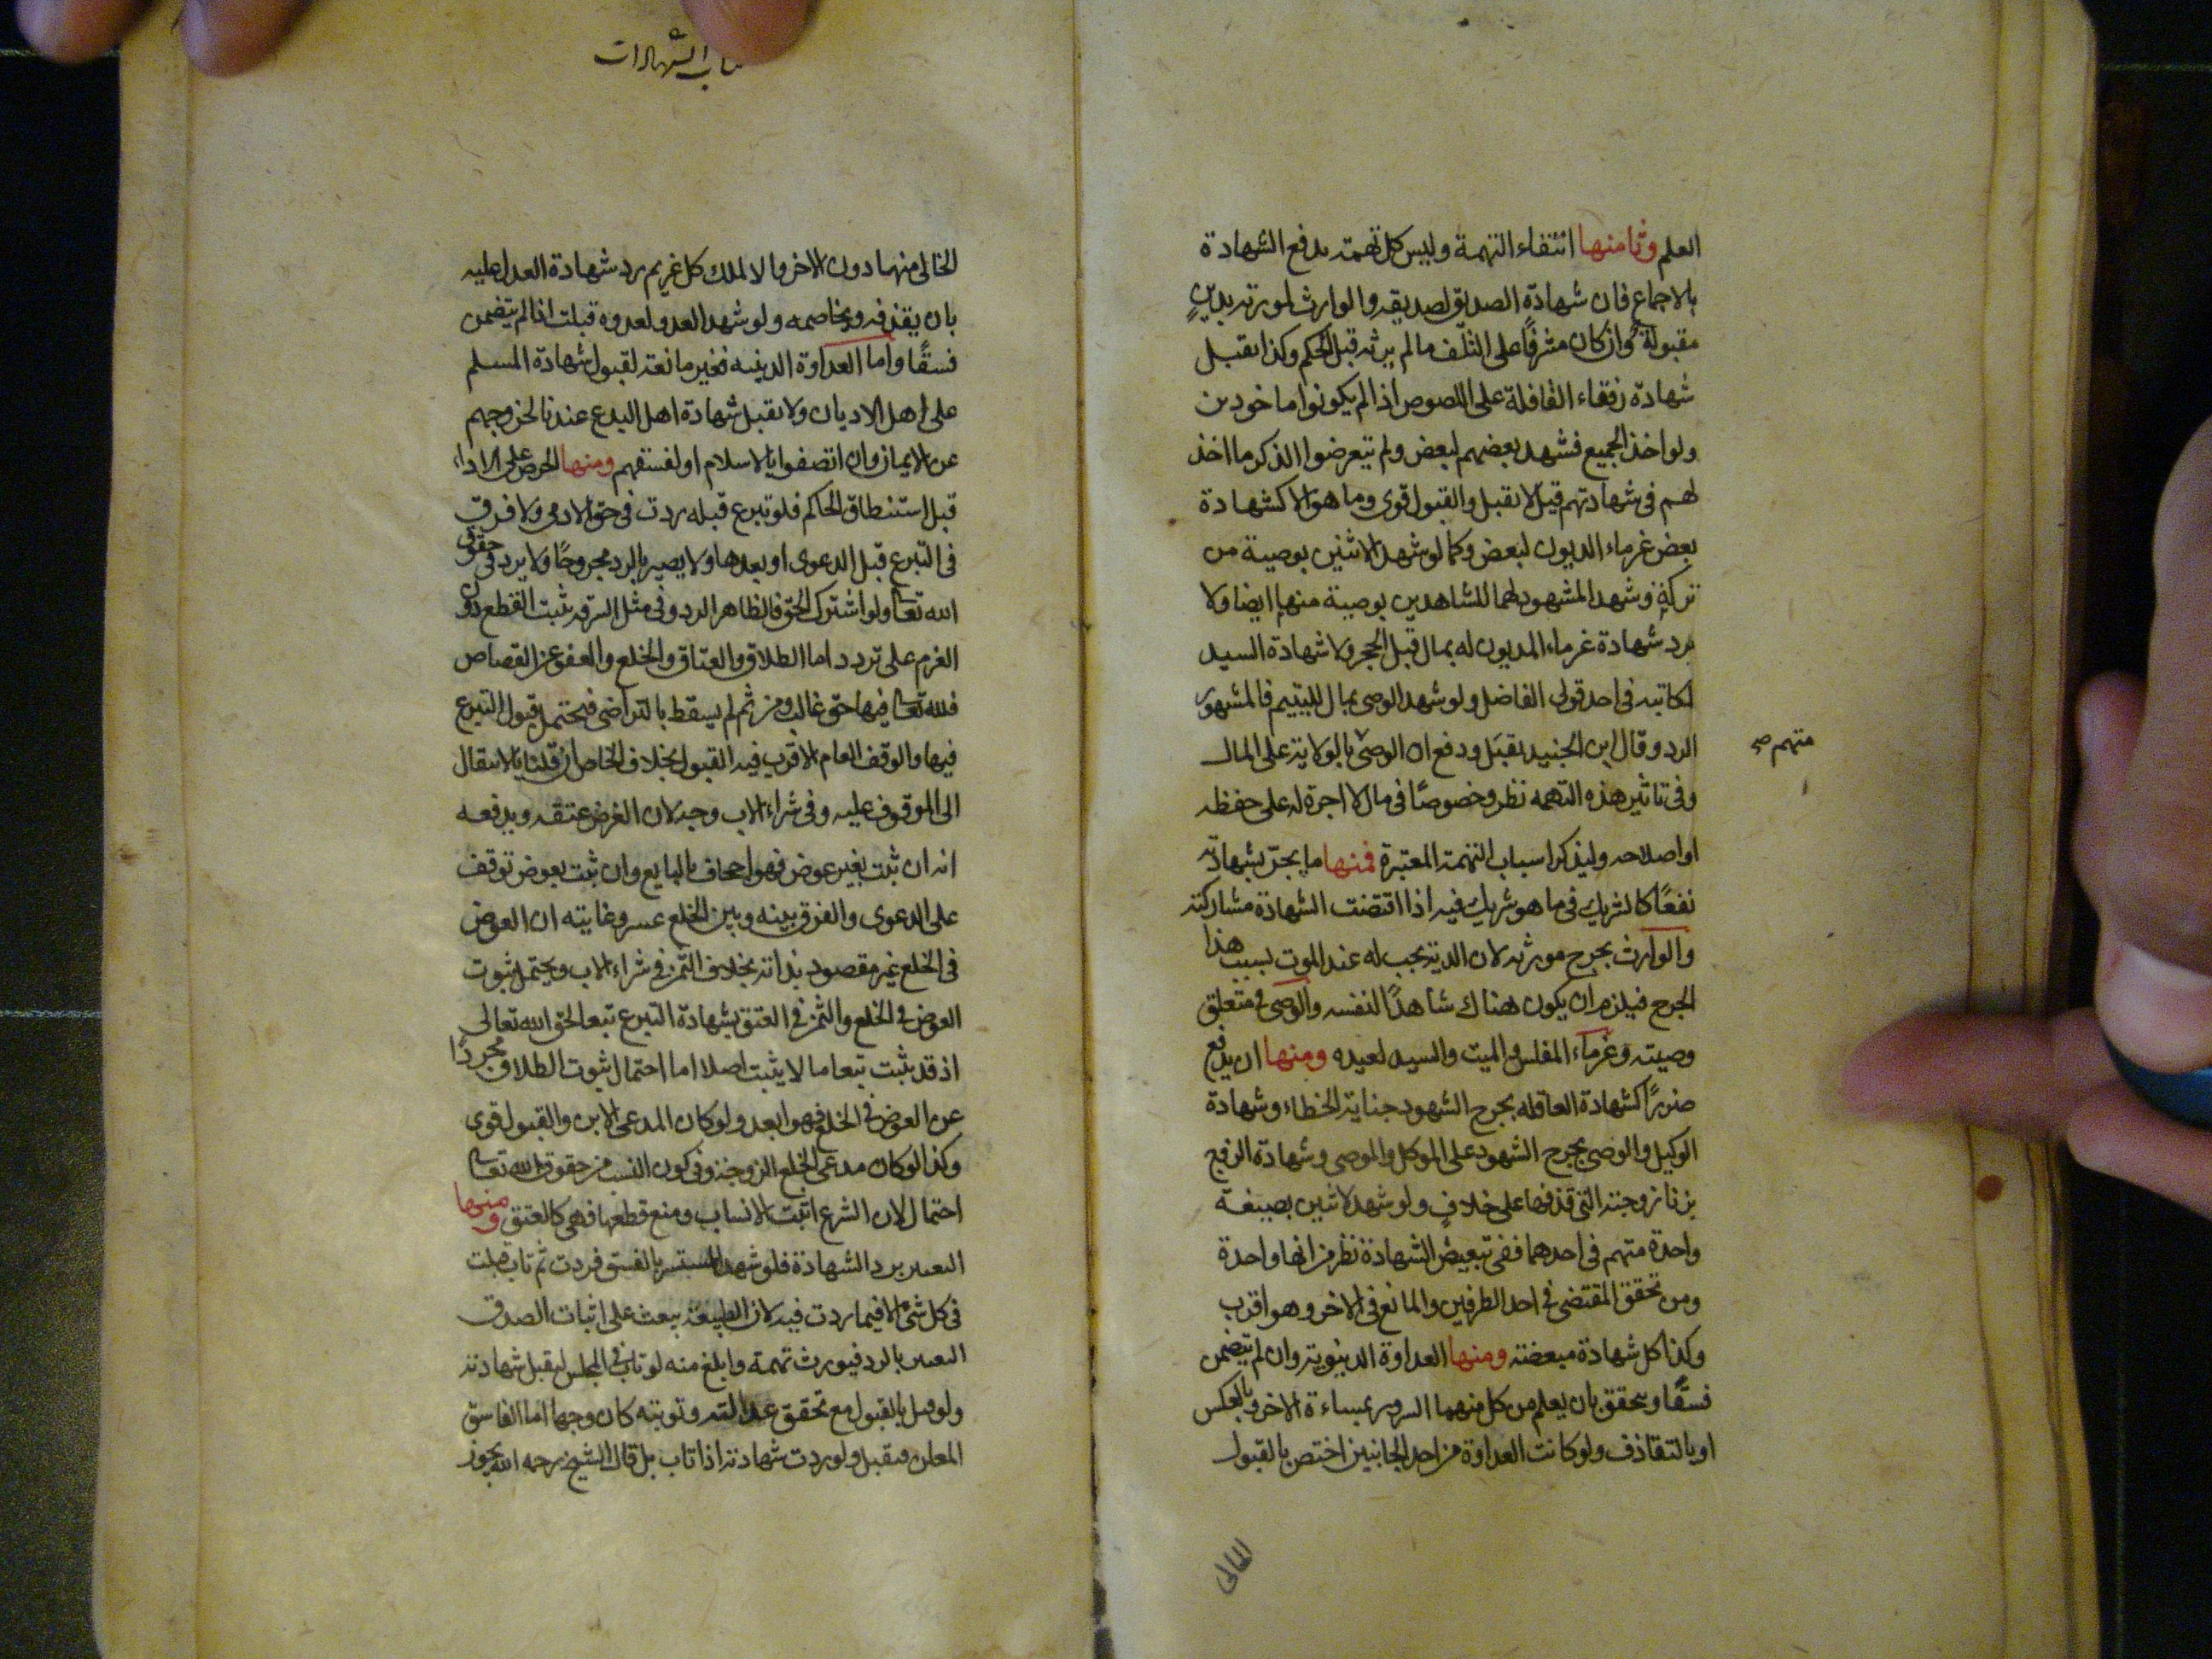 العلم وثامنها انتفاء التهمة وليس كل تهمة يدفع الشهادة
بالاجماع فان شهادة الصديق لصديقه والوارث لمورثه بدين
مقبولة وان كان مشرفا على التلف ما لم يرثه قبل الحكم وكذا يقبل
شهادة رفقاء القافلة على اللصوص اذا لم يكونوا ماخوذين
ولو اخذ الجميع فشهد بعضهم لبعض ولم يتعرضوا لذكر ما اخذ
لهم في شهادتهم قيل لا يقبل والقبول قوى وما هو الا كشهادة
بعض غرماء المديون لبعض وكما لو شهد لاثنين بوصية من
تركة وشهد المشهود لهما للشاهدين بوصية منها ايضا ولا
يرد شهادة غرماء المديون له بمال قبل الحجر ولا شهادة السيد
لمكاتبه في احد قولى الفاضل ولو شهد الوصى بمال لليتيم فالمشهور
الرد وقال ابن الجنيد يقبل ودفع ان الوصى بالولاية على المال
متهم صح
وفي تاثير هذه التهمة نظر وخصوصا في مال لا اجرة له على حفظه
او اصلاحه وليذكر اسباب التهمة المعتبرة فمنها ما يجر بشهادته
نفعا كالشريك في ما هو شريك فيه اذا اقتضت الشهادة مشاركته
والوارث بجرح مورثه لان الدية يجب له عند الموت بسبب هذا
الجرح فيلزم ان يكون هناك شاهدا لنفسه والوصى في متعلق
وصيته وغرماء المفلس والميت والسيد لعبده ومنها ان يدفع
ضررا كشهادة العاقلة بجرح الشهود جناية الخطاء وشهادة
الوكيل والوصى بجرح الشهود على الموكل والموصى وشهادة الزوج
بزنا زوجته التي قذفها على خلاف ولو شهد لاثنين بصيغة
واحدة متهم في احدهما ففى تبعيض الشهادة نظر من انها واحدة
ومن تحقق المقتضى في احد الطرفين والمانع في الاخر وهو اقرب
وكذا كل شهادة مبعضة ومنها العداوة الدنيوية وان لم يتضمن
فسقا ويتحقق بان يعلم من كل منهما السرور بمساءة الاخر وبالعكس
او بالتقاذف ولو كانت العداوة من احد الجانبين اختص بالقبول
الخالى
كتاب الشهادات
الخالى منها دون الاخر والا لملك كل غريم رد شهادة العدل عليه
بان يقذفه ويخاصمه ولو شهد العدو لعدوه قبلت اذا لم يتضمن
فسقا واما العداوة الدينيه فغير مانعة لقبول شهادة المسلم
على اهل الاديان ولا يقبل شهادة اهل البدع عندنا لخروجهم
عن الايمان وان اتصفوا بالاسلام او لفسقهم ومنها الحرص على الاداء
قبل استنطاق الحاكم فلو تبرع قبله ردت في حق الادمى ولا فرق
في التبرع قبل الدعوى او بعدها ولا يصير بالرد مجروحا ولا يرد في حقوق
الله تعالى ولو اشترك الحق فالظاهر الرد وفي مثل السرقة يثبت القطع دون
الغرم على تردد اما الطلاق والعتاق والخلع والعفو عن القصاص
فلله تعالى فيها حق غالب ومن ثم لم يسقط بالتراضى فيحتمل قبول التبرع
فيها والوقف العام الاقرب فيه القبول بخلاف الخاص ان قلنا بالانتقال
الى الموقوف عليه وفي شراء الاب وجه لان الغرض عتقه ويدفعه
انه ان ثبت بغير عوض فهو اجحاف بالبايع وان ثبت بعوض توقف
على الدعوى والفرق بينه وبين الخلع عسر وغايته ان العوض
في الخلع غير مقصود بذاته بخلاف الثمن في شراء الاب ويحتمل ثبوت
العوض في الخلع والثمن في العتق بشهادة التبرع تبعا لحق الله تعالى
اذ قد يثبت تبعا ما لا يثبت اصلا اما احتمال ثبوت الطلاق مجردا
عن العوض في الخلع فهو ابعد ولو كان المدعى الابن والقبول قوى
وكذا لو كان مدعى الخلع الزوجة وفي كون النسب من حقوق الله تعالى
احتمال لان الشرع اثبت الانساب ومنع قطعها فهى كالعتق ومنها
التعيير برد الشهادة فلو شهد المستتر بالفسق فردت ثم تاب قبلت
في كل شئ الا فيما ردت فيه لان الطبيعة يبعث على اثبات الصدق
التعيير بالرد فيورث تهمة وابلغ منه لو تاب في المجلس ليقبل شهادته
ولو قيل بالقبول مع تحقق عدالته وتوبته كان وجها اما الفاسق
المعلن فيقبل ولو ردت شهادته اذا تاب بل قال الشيخ رحمه الله يجوز